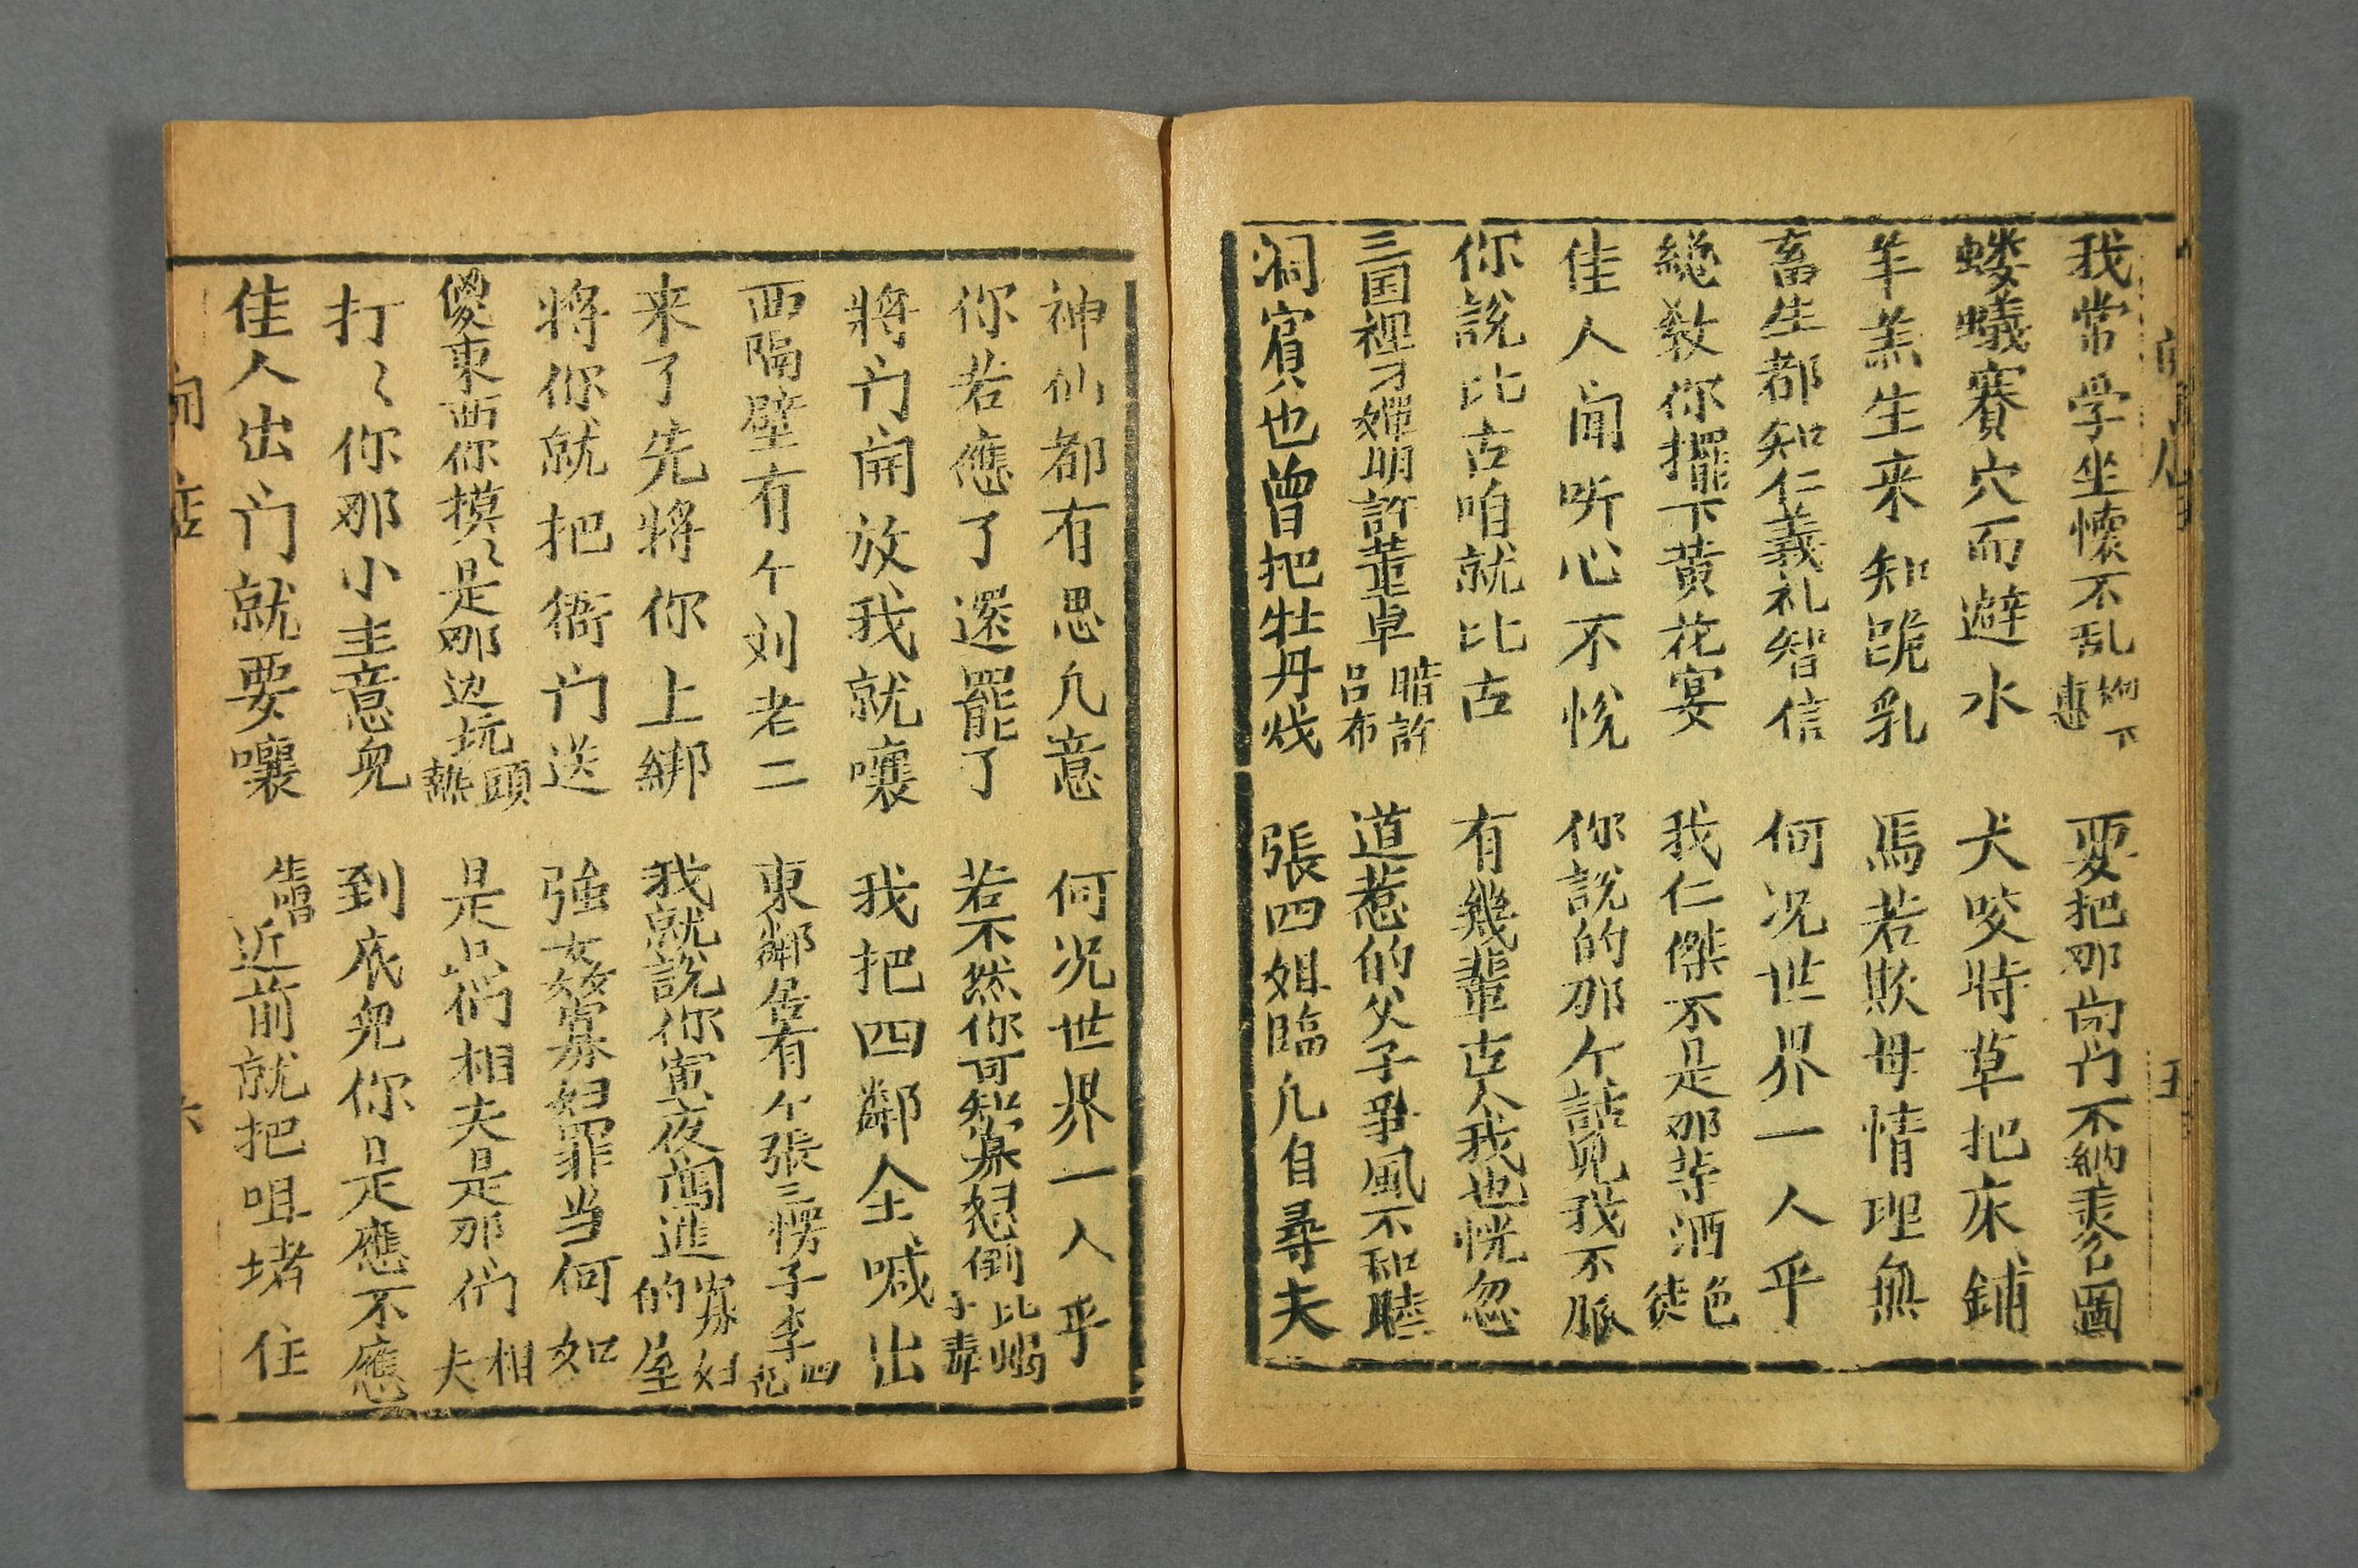 我常学坐懷不乱柳下惠 要把那闭门不納秉名圖
螻蟻賽穴而避水 犬咬時草把床鋪
羊羔生来知跪乳 馬若欺母情理無
畜生都知仁義礼智信 何况世界一人乎
總敎你擺下黄花宴 我仁傑不是那等酒色徒
佳人闻听心不悦 你說的那个話児我不服
你說比古咱就比古 有幾輩古人我也恍忽
三国裡刁嬋明許董卓暗許吕布 道惹的父子爭風不和睦
洞賓也曾把牡丹戏 張四姐臨凡自尋夫
神仙都有思凡意 何况世界一人乎
你若應了還罷了 若不然你可知寡
将门開放我就嚷 我把四鄰全喊出
西隔壁有个刘老二 東鄰居有个張三愣子李四
来了先将你上綁 我就說你寅夜闯進的寡妇屋
将你就把衙门送 強女姦寡妇罪当何如
傻東西你摸〻是那边坑頭热 是咱们相夫是那们相夫
打〻你那小主意児 到底児你是應不應
佳人出门就要嚷 生唱近前就把咀堵住